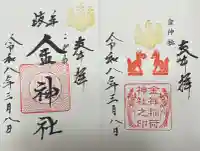 奉拝
岐阜
金神社
令和八年三月八日
金神社
奉拝
令和八年三月八日